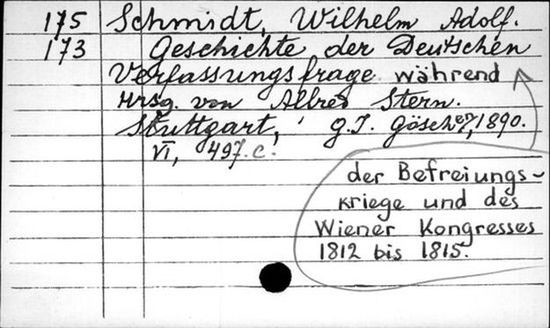 175 Schmidt, Wilhelm Adolf.
173 Geschichte der Deutschen
Verfassungsfrage während
Hrsg. von Alfred Stern.
Stuttgart, G.J. Göschen, 1890.
VI, 497 c.
der Befreiungs-
kriege und des
Wiener Kongresses
1812 bis 1815.